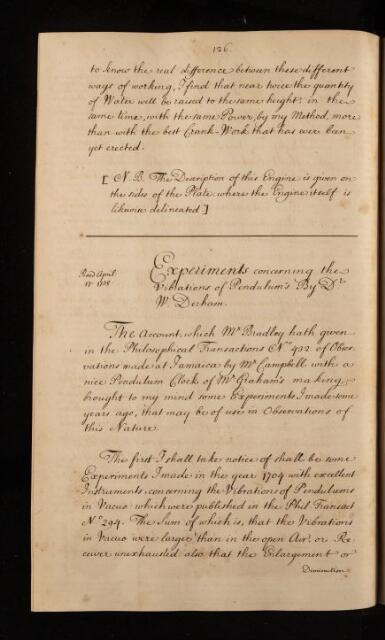 126.
to know the real difference between these different
ways of working, I find that near twice the quantity
of Water will be raised to the same height, in the
same time, with the same Power, by my Method, more
than with the best Crank-Work that has ever been
yet erected.
[ N.B. The Description of this Engine is given on
the sides of the Plate where the Engine itself is
likewise delineated ]
Read April
Experiments concerning the
Vibrations of Pendulum's By Dr
W. Derham.
The Account, which Mr Bradley hath given
in the Philosophical Transactions No 432 of Obser-
vations made at Jamaica by Mr Campbell with a
nice Pendulum Clock of Mr Graham's making,
brought to my mind some Experiments I made some
years ago, that may be of use in Observations of
this Nature
The first I shall take notice of shall be some
Experiments I made in the year 1704 with excellent
Instruments, concerning the Vibrations of Pendulums
in Vacuo which were published in the Phil. Transact
No 294. The Sum of which is, that the Vibrations
in Vacuo were larger than in the open Air, or Re-
ceiver unexhausted also that the Enlargement or
Diminution